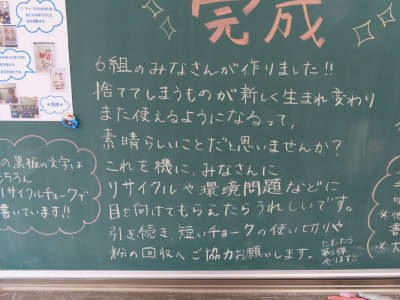 完成
6組のみなさんが作りました!!
捨ててしまうものが新しく生まれ変わり
また使えるようになるって、
素晴らしいことだと思いませんか?
これを機に、みなさんに
リサイクルや環境問題などに
目を向けてもらえたらうれしいです。
引き続き、短いチョークの使い切りや
粉の回収へご協力お願いします。
たまったら
第2弾
やります!!
の黒板の文字は
もちろん
リサイクルチョークで
書いています!!